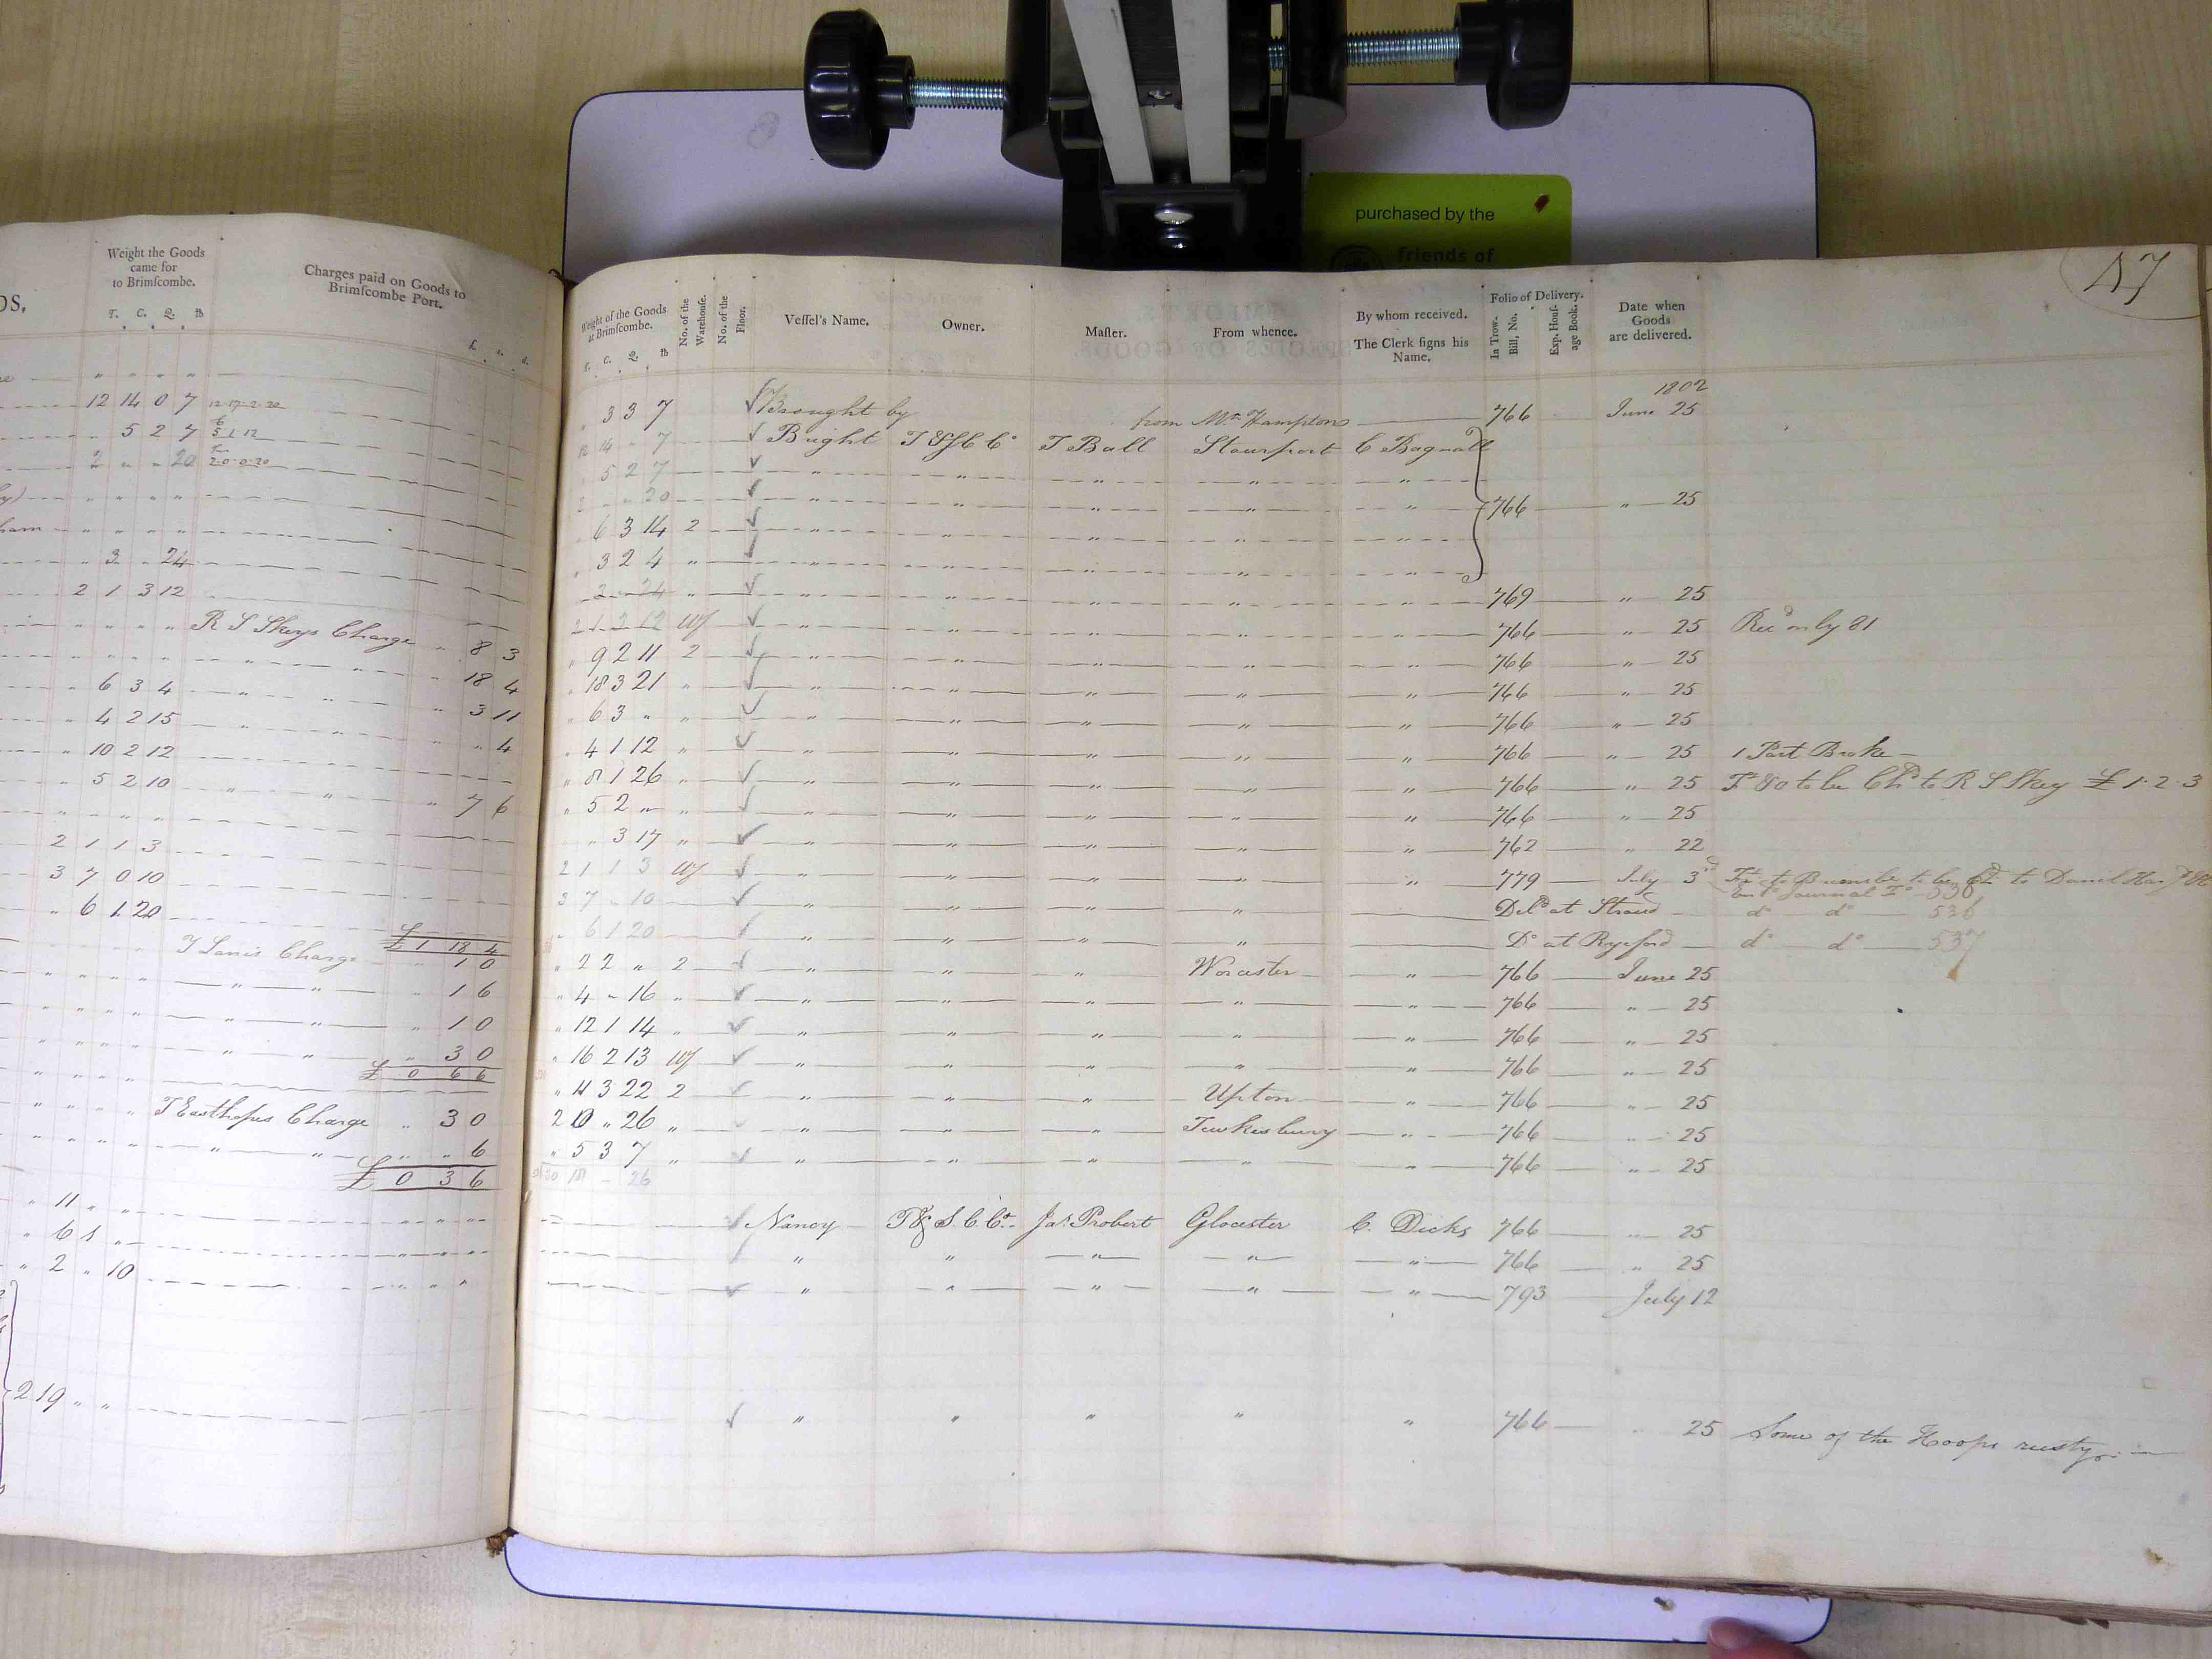 purchased by the
friends of
DS,
Weight the Goods
came for
to Brimſcombe.
T. C. Q. lb
Charges paid on Goods to
Brimſcombe Port.
£. s. d.
12 14 0 7 12-17-2-22
" 5 2 7 5 1 12
2 " " 20 2 0-0-20
ham
3 " 24
2 1 3 12
" " " " R S Skeys Charge " 8 3
" 18 4
" 6 3 4 " " " 3 11
" 4 2 15 " " 4
" 10 2 12
" 5 2 10 " " " 7 6
2 1 1 3
3 7 0 10
" 6 1 20
£ 1 18 4
Charge " 1 0
" " 1 6
" " " 1 0
" " " 3 0
£ 0 6 6
T Easthopes Charge " 3 0
" " " " 6
£ 0 3 6
" 11 " "
" 6 1 "
" 2 " 10
2 19 " "
47
Weight of the Goods
at Brimſcombe.
T. C. Q. lb
No. of the
Warehouse.
No. of the
Floor.
Veſſel's Name.
Owner.
Maſter.
From whence.
By whom received.
The Clerk ſigns his
Name.
Folio of Delivery.
In Trow.
Bill, No.
Exp. Houſ-
age Book.
Date when
Goods
are delivered.
1802
" 3 3 7 Brought by from Mr. Hamptons 766 June 25
12 14 " 7 Bright T & S C Co T Ball Stourport C Bagnall
" 5 2 7 " " " " "
2 " " 20 " " " " " 766 " 25
" 6 3 14 2 " " " " "
" 3 2 4 " " " " " "
" 3 " 24 " " " " " " 769 " 25
2 1 3 12 Wf " " " " " 766 " 25 Recd only 81
" 9 2 11 2 " " " " " 766 " 25
" 18 3 21 " " " " " " 766 " 25
" 6 3 " " " " " " " 766 " 25
" 4 1 12 " " " " " " 766 " 25 1 Part Broke
" 8 1 26 " " " " " " 766 " 25 Ft &c to be Chd to R S Skey £ 1-2-3
" 5 2 " " " " " " " 766 " 25
" " 3 17 " " " " " " 762 " 22
2 1 1 3 Wf " " " " " 779 July 3d Ft to Brimscbe to be Chd to Daniel
Entd Journal Fo 536
3 7 " 10 " " " " Deld at Stroud do do 536
" 6 1 20 " " " " Do at Ryeford do do 537
" 2 2 " 2 " " " Worcester " 766 June 25
" 4 " 16 " " " " " " 766 " 25
" 12 1 14 " " " " " " 766 " 25
" 16 2 13 Wf " " " " " 766 " 25
" 4 3 22 2 " " " Upton " 766 " 25
2 0 " 26 " " " " Tewkisbury " 766 " 25
" 5 3 7 " " " " " " 766 " 25
30 18 " 26
Nancy T & S. C Co. Jas. Probert Glocester C. Dicks 766 " 25
" " " " " 766 " 25
" " " " " 793 July 12
" " " " " 766 " 25 Some of the Hoops rusty